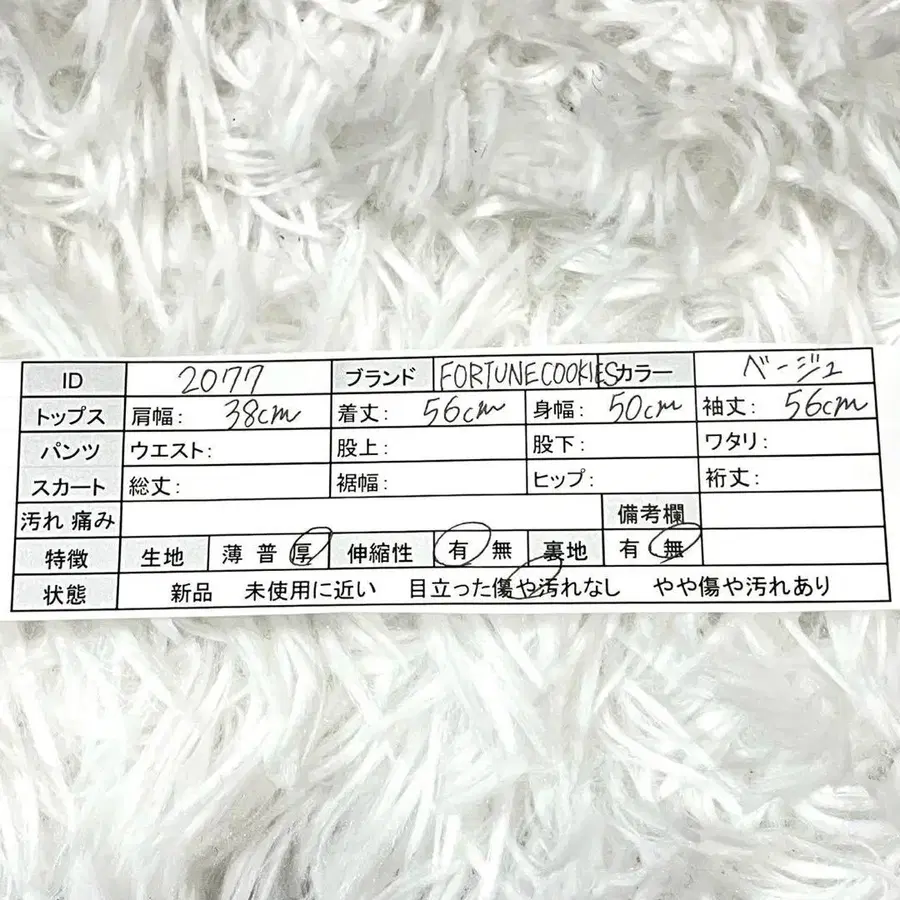 ID 2077 ブランド FORTUNECOOKIES カラー ベージュ
トップス 肩幅: 38cm 着丈: 56cm 身幅: 50cm 袖丈: 56cm
パンツ ウエスト: 股上: 股下: ワタリ:
スカート 総丈: 裾幅: ヒップ: 裄丈:
汚れ 痛み 備考欄
特徴 生地 薄 普 厚 伸縮性 有 無 裏地 有 無
状態 新品 未使用に近い 目立った傷や汚れなし やや傷や汚れあり